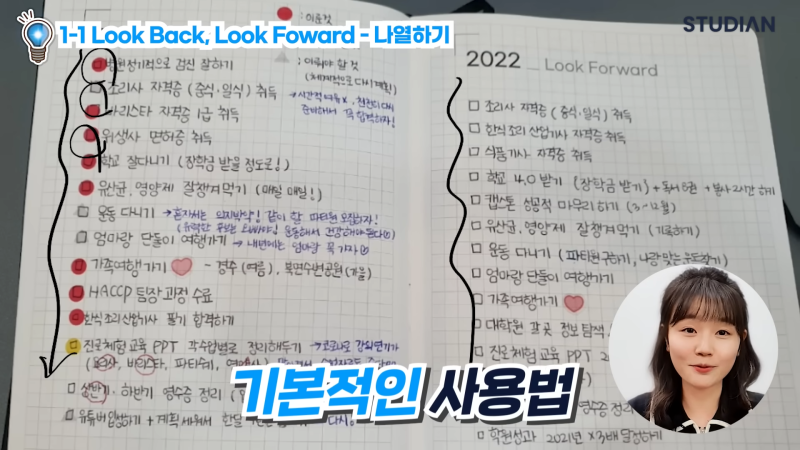 1-1 Look Back, Look Foward - 나열하기
STUDIAN
: 이룬것
: 이뤄야 할 것
병원정기적으로 검진 잘하기
조리사 자격증 (중식·일식) 취득
바리스타 자격증 1급 취득
위생사 면허증 취득
학교 잘다니기 (장학금 받을 정도로!)
유산균, 영양제 잘챙겨먹기 (매일 매일!)
운동 다니기 → 혼자서는 의지박약! 같이 할 파티원 모집하자!
엄마랑 단둘이 여행가기 → 내년에는 엄마랑 꼭 가자
가족여행가기 - 경주 (여름), 북면수변공원 (가을)
HACCP 팀장 과정 수료
한식조리산업기사 필기 합격하기
진로체험교육 PPT 각수업별로 정리해두기
상반기, 하반기 영수증 정리
2022 _ Look Forward
조리사 자격증 (중식·일식) 취득
한식조리 산업기사 자격증 취득
식품기사 자격증 취득
학교 4.0 받기 (장학금 받기) + 독서 6권 + 봉사 2시간 하기
캡스톤 성공적 마무리 하기 (3~12월)
유산균, 영양제 잘챙겨먹기 (기록하기)
운동 다니기 (파티원구하기, 나랑 맞는 운동찾기)
엄마랑 단둘이 여행가기
가족여행가기
대학원 갈 곳 정보 탐색
진로체험교육 PPT
영수증 정리
학원성과 2021년 ×3배 달성하기
기본적인 사용법